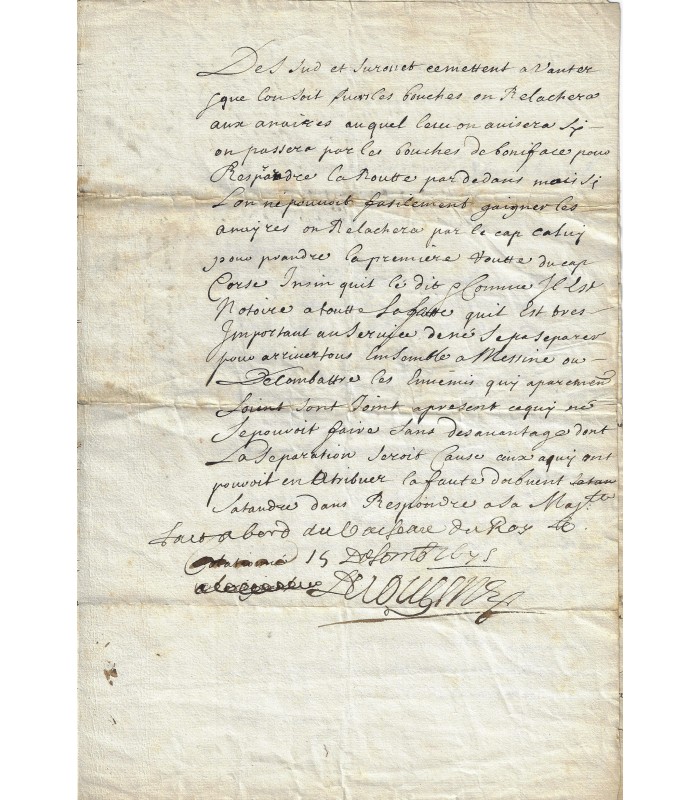 Des sud et surouet cemettent a vanter
que lon soit sur les bouches on Relachera
aux anaires auquel lieu on avisera sy
on passera par les bouches de boniface pour
Resprandre la Routte par dedans mais si
Lon ne pouvoit fasilement gaigner les
anayres on Relachera par le cap calvy
pour prandre la premiere Routte du cap
Corse Insin quil le dit Comme Il Est
Notoire a toutte La quil Est tres
Important au service de né se pa separer
pour arriver tous Ensemble a Messine ou
De Combattre les Ennemis quy aparement
Soint Joint apresent ce quy né
Se pouvoit faire sans desavantage dont
La Separation seroit Cause aux a quy ont
pouvoit en Atribuer la faute dobvent
Satandre dans Respondre a Sa Maj.te
fait a bord du Vaiseau du Roy Le
15 Desembre 1675